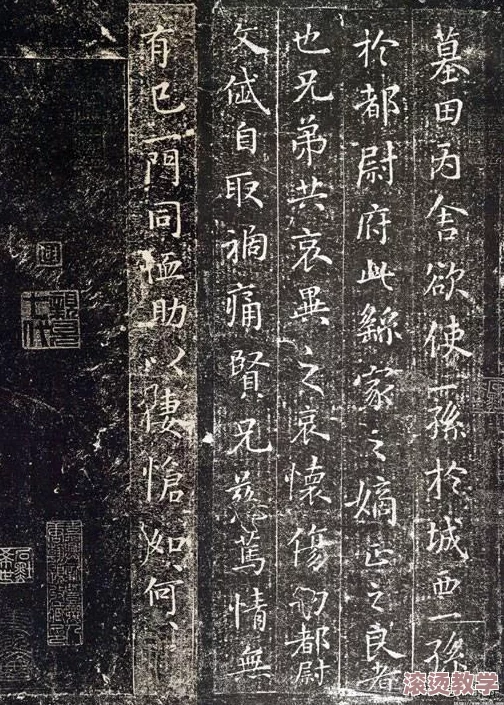 墓田丙舍欲使一孫於城西一孫
於都尉府此繇家之嫡正之良者
也兄弟共哀異之哀懷傷切都尉
文岱自取禍痛賢兄慈篤情無
有已一門同恤助以悽愴如何〻
滚烫教学